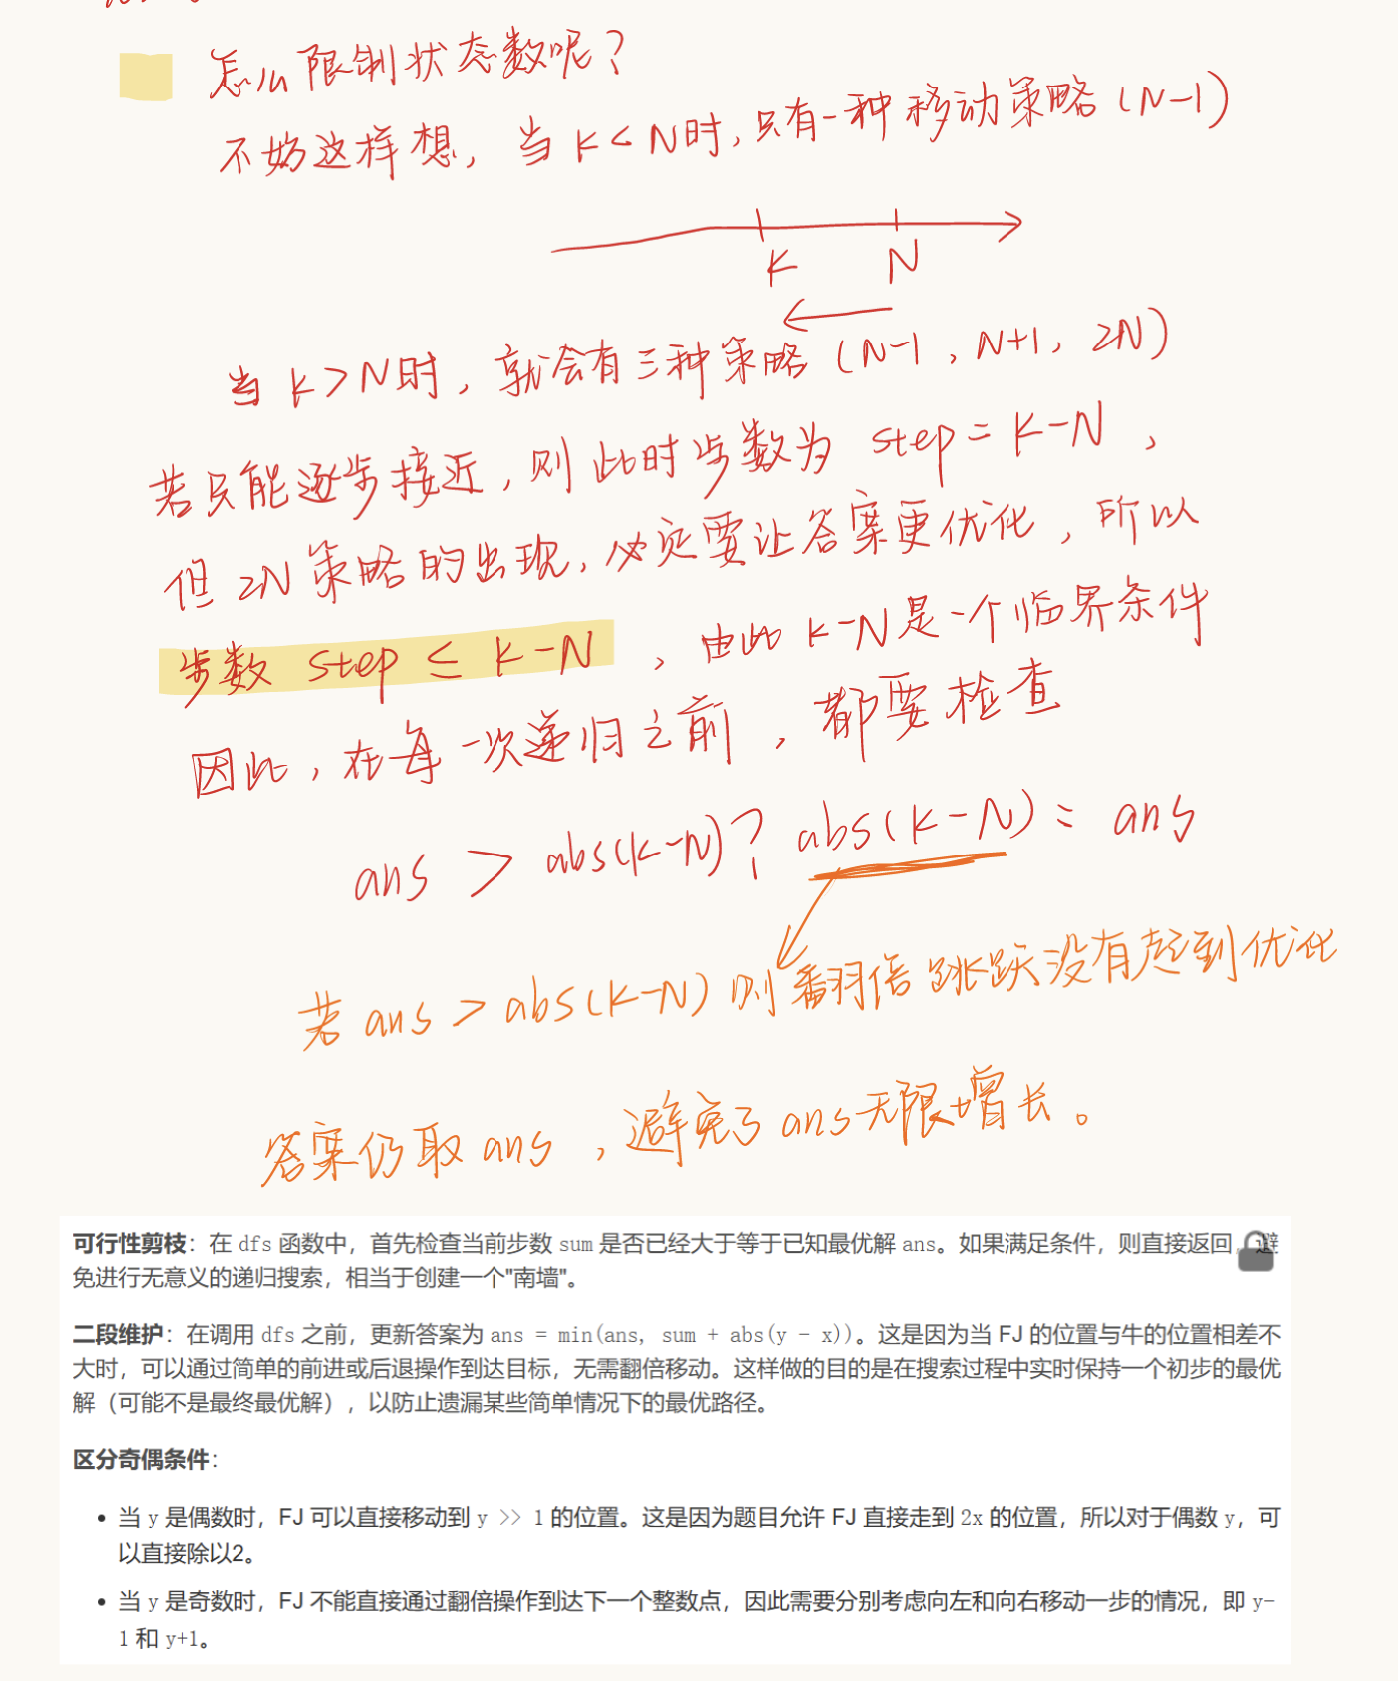 怎么限制状态数呢?
不妨这样想, 当 K < N时, 只有一种移动策略 (N-1)
K N
当 K > N时, 就会有三种策略 (N-1, N+1, 2N)
若只能逐步接近, 则此时步数为 step = K-N,
但 2N 策略的出现, 必定要让答案更优化, 所以
步数 step ≤ K-N, 由此 K-N是一个临界条件
因此, 在每一次递归之前, 都要检查
ans > abs(K-N)? abs(K-N) = ans
若 ans > abs(K-N) 则翻倍跳跃没有起到优化
答案仍取 ans, 避免了 ans无限增长。
可行性剪枝：在 dfs 函数中，首先检查当前步数 sum 是否已经大于等于已知最优解 ans。如果满足条件，则直接返回，避
免进行无意义的递归搜索，相当于创建一个"南墙"。
二段维护：在调用 dfs 之前，更新答案为 ans = min(ans, sum + abs(y - x))。这是因为当 FJ 的位置与牛的位置相差不
大时，可以通过简单的前进或后退操作到达目标，无需翻倍移动。这样做的目的是在搜索过程中实时保持一个初步的最优
解（可能不是最终最优解），以防止遗漏某些简单情况下的最优路径。
区分奇偶条件：
• 当 y 是偶数时，FJ 可以直接移动到 y >> 1 的位置。这是因为题目允许 FJ 直接走到 2x 的位置，所以对于偶数 y，可
以直接除以2。
• 当 y 是奇数时，FJ 不能直接通过翻倍操作到达下一个整数点，因此需要分别考虑向左和向右移动一步的情况，即 y-
1 和 y+1。